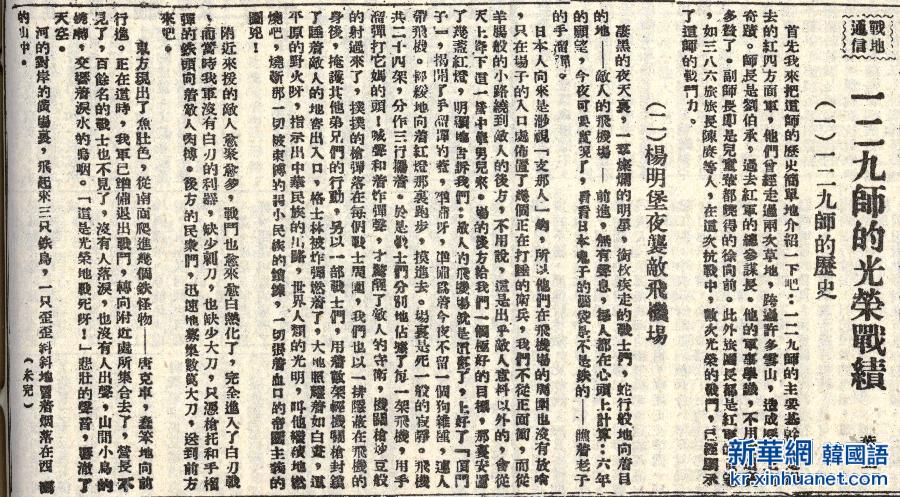 戰地通信
一二九師的光榮戰績
（一）一二九師的歷史
首先我來把這師的歷史簡單地介紹一下吧：一二九師的主要基幹
去的紅四方面軍，他們曾經走過兩次草地，跨過許多雪山，造成
奇蹟。師長是劉伯承，過去紅軍的總參謀長。他的軍事學識，不用
多贅了。副師長即是兒童輩都曉得的徐向前。此外旅團長都是紅軍的
，如三八六旅旅長陳賡等人，在這次抗戰中，數次光榮的戰鬥，已經顯示
了這師的戰鬥力。
（二）楊明堡夜襲敵飛機場
漆黑的夜天裏，一羣燦爛的明星，銜枚疾走的戰士們，蛇行般地向着目
的地——敵人的飛機場——前進，無有聲息，每人都在心頭上計算：六年
的願望，今夜可要實現了，看看日本鬼子的腦袋是不是鐵的——瞧着老子
的手溜彈。
日本人向來是渺視「支那人」的，所以他們在飛機場的周圍也沒有放哨
，只在場子的入口處佈置了幾個正在打睡的衛兵，我們不從正面衝，而從
羊腸般的小路繞到敵人的後方，不用說，這是出乎敵人意料以外的，會從
天上降下這一營中華男兒來。場的後方給我們一個極好的目標，那裏安置
了幾盞紅燈，明顯地告訴我們：敵人的飛機場就是這裏了，上好了「頂門
子」，揭開了手溜彈的蓋，準備好呀，準備爲着今夜不留一個狗雜種，連人
帶飛機。輕輕地向着紅燈那裏跑步，摸進去。場裏是死一般的寂靜。飛機
共二十四架，分作三行擺着。於是戰士們分別地佔據了每一架飛機，用手
溜彈打它媽的頭！喊聲和着炸彈聲，才驚醒了敵人的守衛，機關槍炒豆般
的射過來了，撲撲的槍彈落在每個戰士的周圍，我們也以一排隱蔽在飛機的
身後，掩護其他弟兄們的行動，另以一部戰士們，用着敵架輕機關槍封鎖
了睡着敵人的地窖出入口，格士林被炸彈燃着了，大地照耀着如白晝，這
平原的野火呀，指示出中華民族的出路，世界人類的光明，叫他繼續地燃
燒吧，燒斷那一切被束縛的弱小民族的鎖鍊，一切張着血口的帝國主義的
圖兇！
附近來援的敵人愈聚愈多，戰鬥也愈來愈白熱化了，完全進入了白刃戰
，而當時我軍沒有白刃的利器，缺少刺刀，也缺少大刀，只憑槍托和手榴
彈的鉄頭向着敵人肉搏。後方的民衆們，迅速地募集數萬大刀，送到前方
來吧。
東方現出了魚肚色，從南面爬進幾個鉄怪物——唐克車，蠢笨地向前
行進。正在這時，我軍已準備退出戰鬥，轉向附近處所集合去了，營長不
見了，百餘名的戰士也不見了，沒有人落淚，也沒有人出聲，山間小鳥的
鳴聲，交響着淚水的嗚咽。「這是光榮地戰死呀！」悲壯的聲音，響澈了
天空。
河的對岸的廣場裏，飛起來三只鉄鳥，一只歪歪斜斜地冒着烟落在西面
的山中。
（未完）
新華網 小國語
kr.xinhuanet.com 韓國頻道